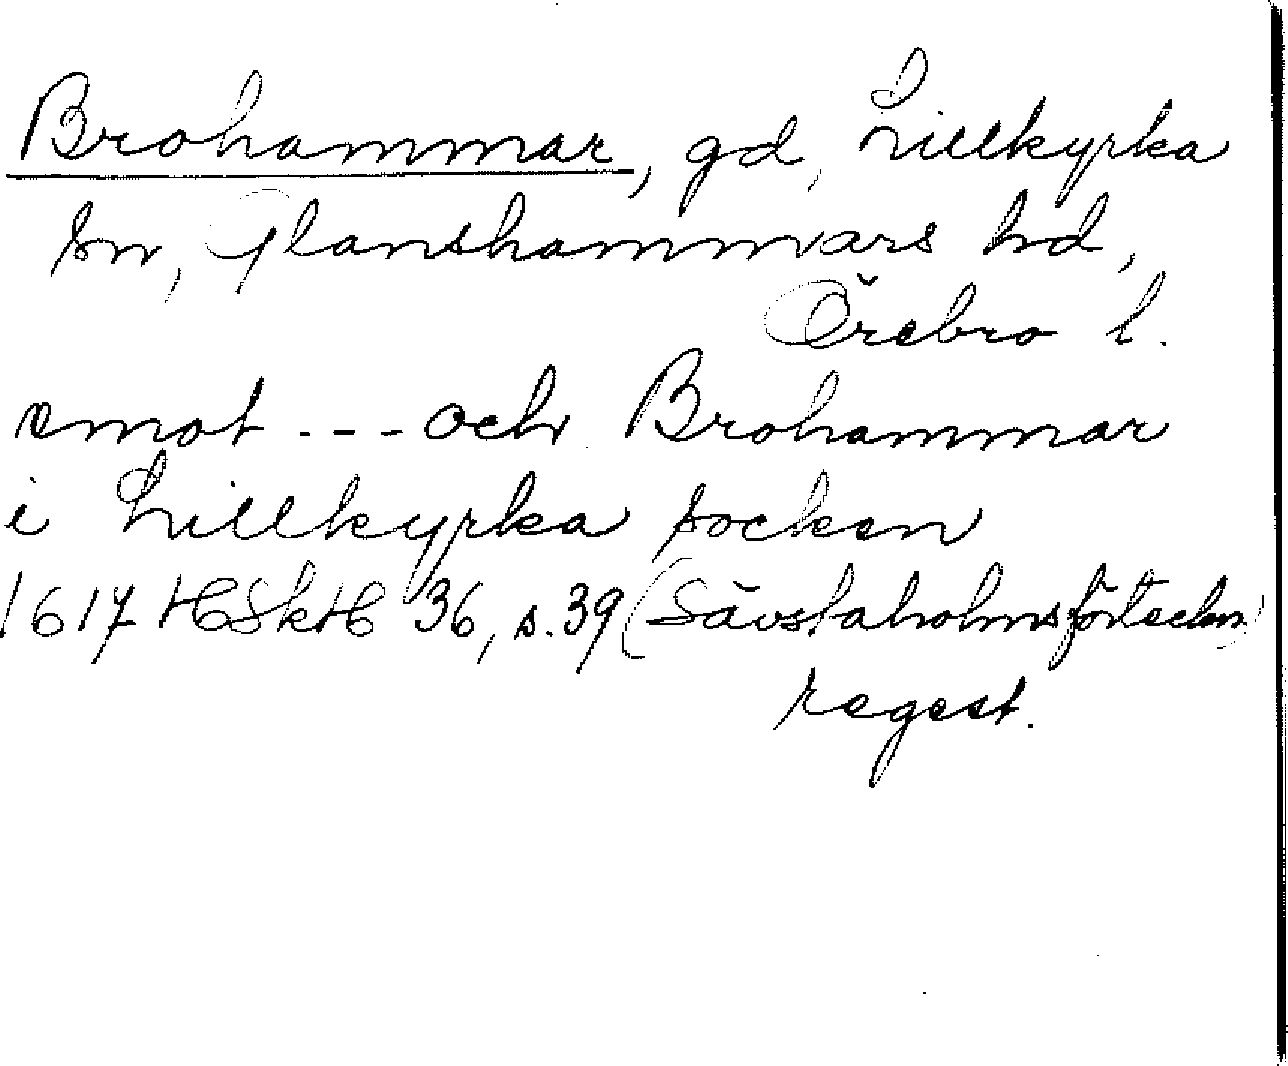 Brohammar, gd, Lillkyrka
sn, Glanshammars hd,
Örebro l.
emot --- och Brohammar
i Lillkyrka socken
1617 HSkH 36, s. 39 (Sävstaholmsförteckn)
regest.